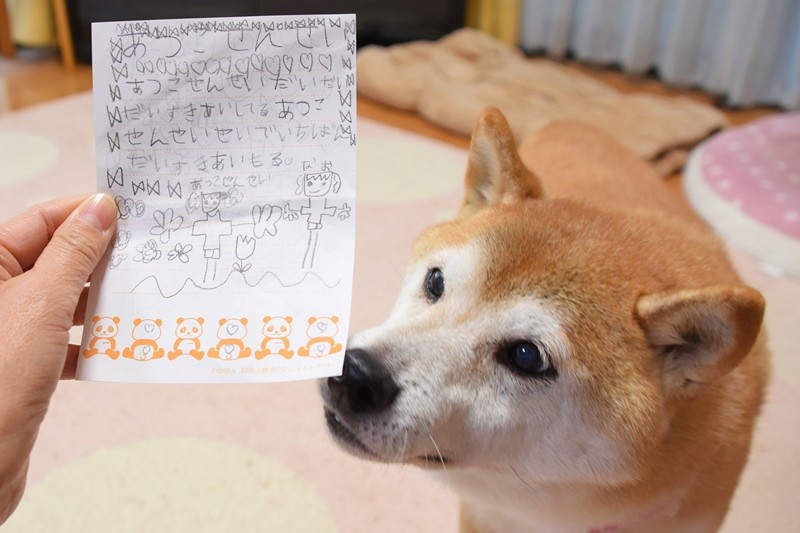 あつこせんせい
あつこせんせいだいだい
だいすきあいしてるあつこ
せんせいせいでいちばん
だいすきあいもる。
あつこせんせい
なお